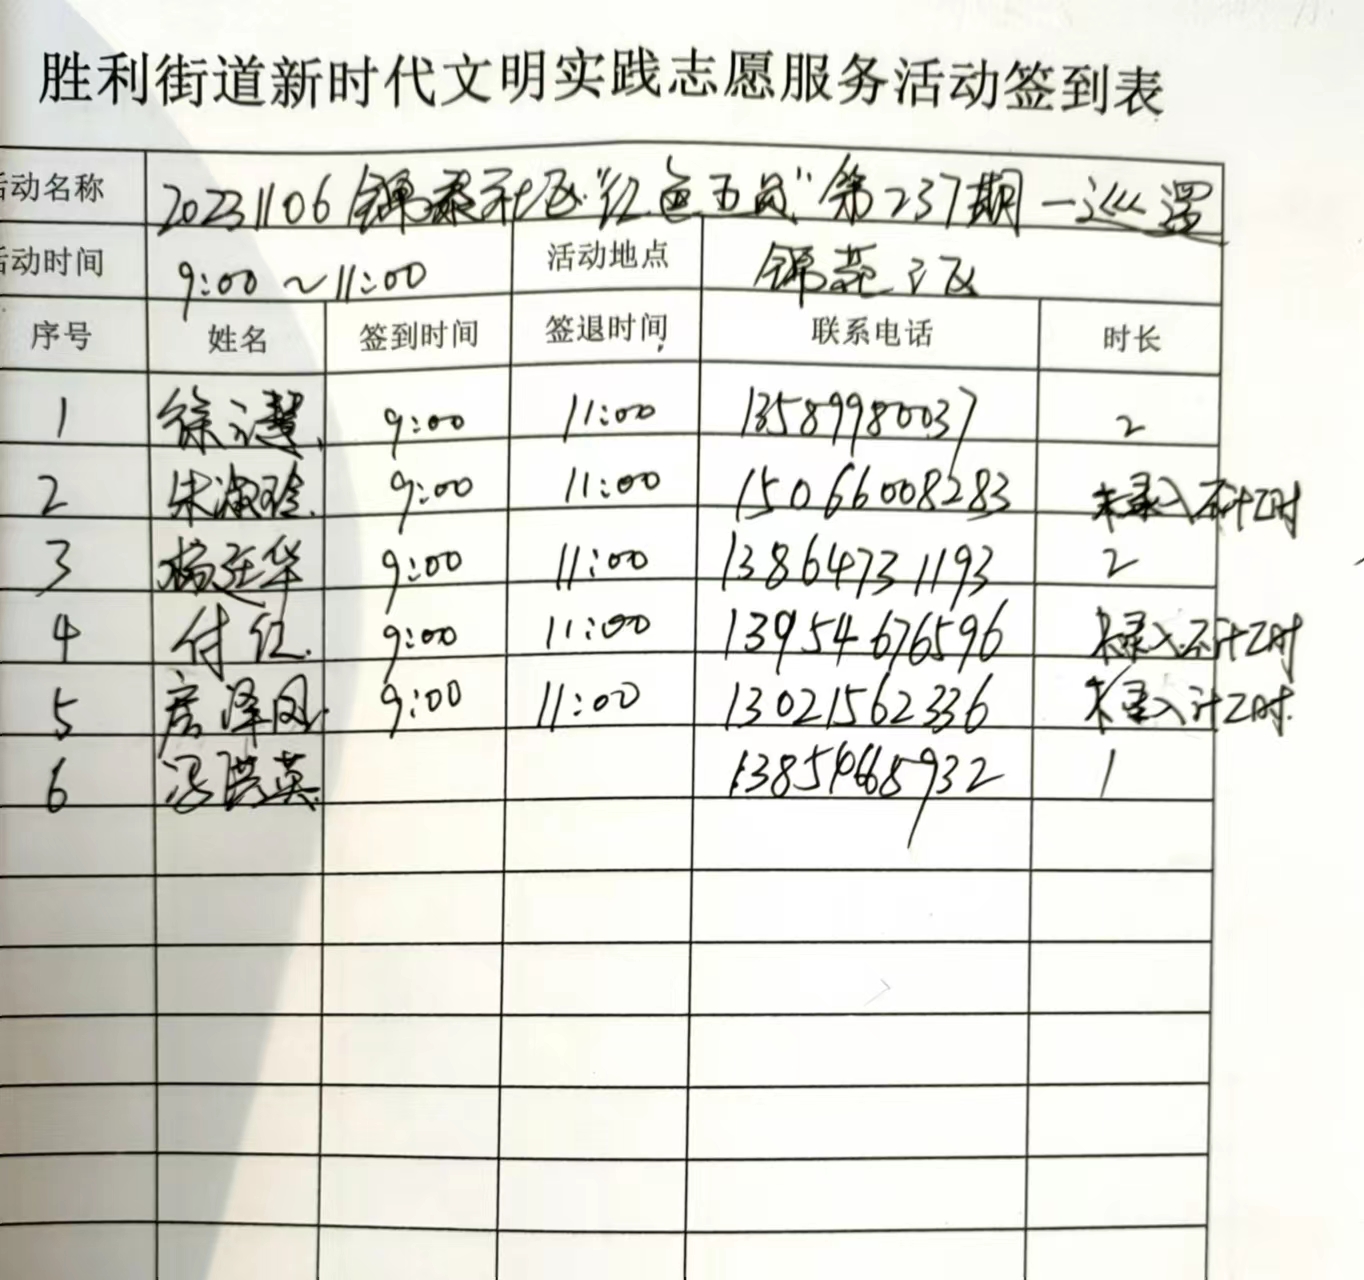 胜利街道新时代文明实践志愿服务活动签到表
活动名称 20231106锦泰社区"红色五员"第237期—巡逻
活动时间 9:00~11:00 活动地点 锦苑三区
序号 姓名 签到时间 签退时间 联系电话 时长
1 徐慧 9:00 11:00 13589980037 2
2 朱淑玲 9:00 11:00 15066008283 未录入不计工时
3 杨廷华 9:00 11:00 13864731193 2
4 付红 9:00 11:00 13954676596 未录入不计工时
5 房泽凤 9:00 11:00 13021562336 未录入计工时
6 冯洪英 13854668932 1